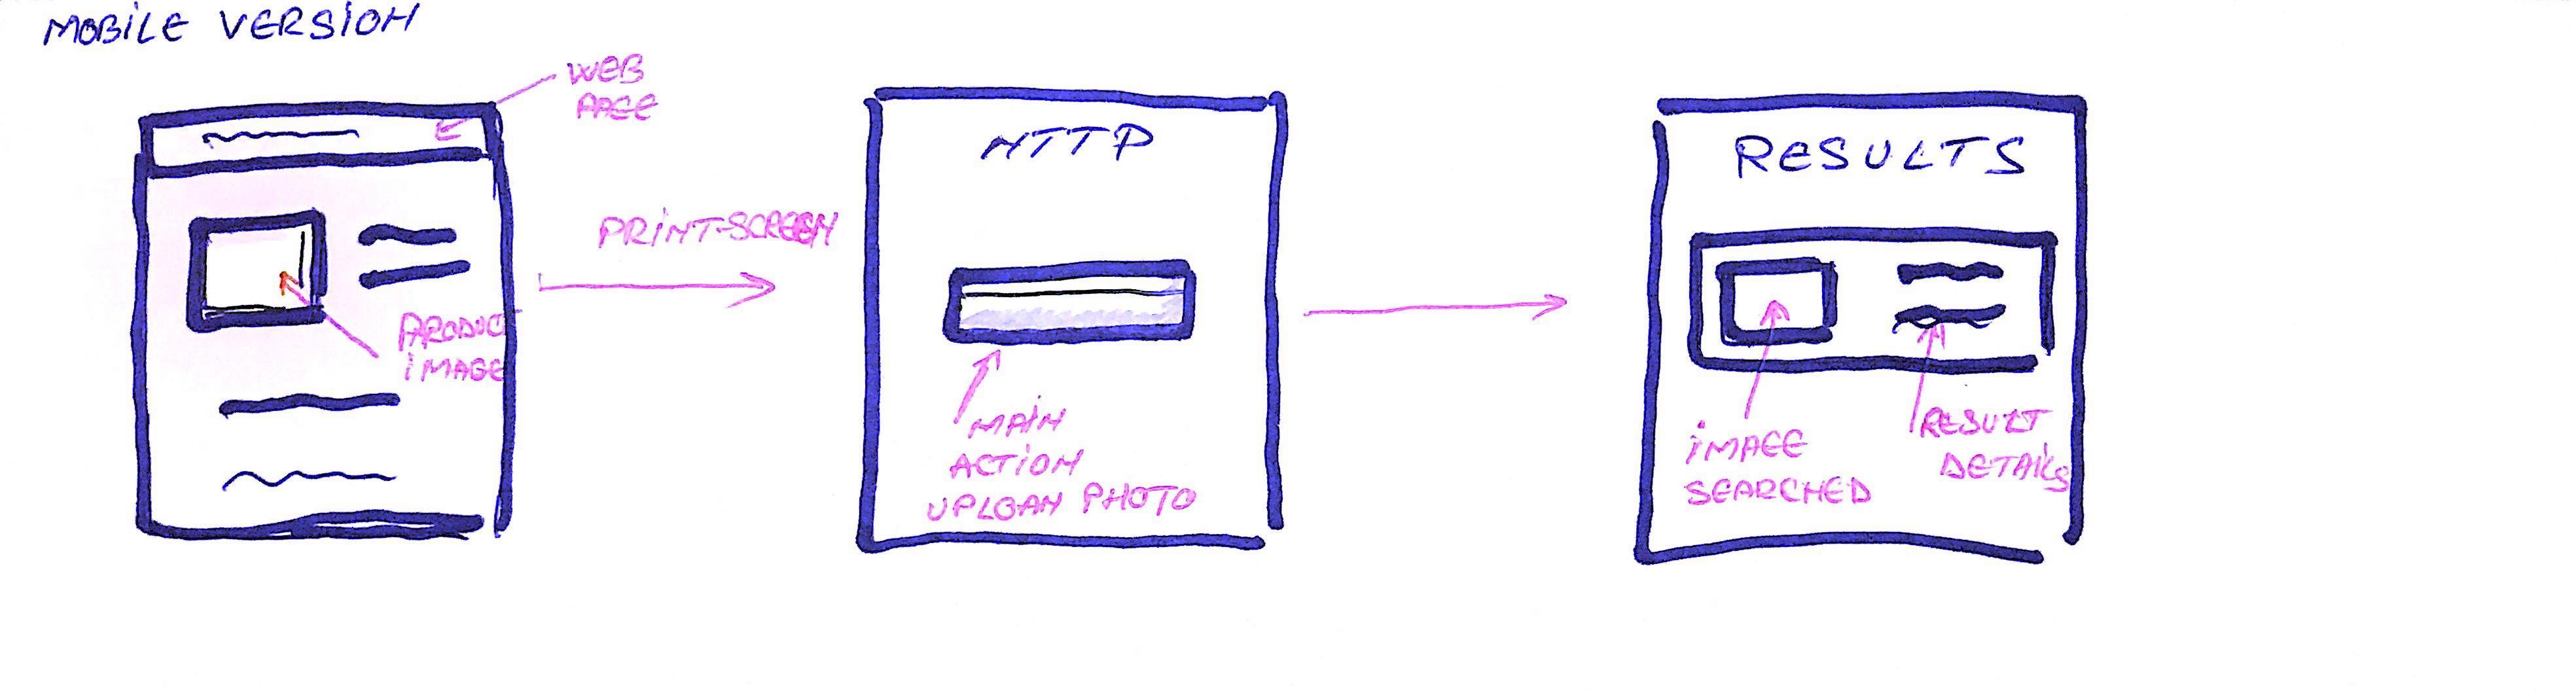 MOBILE VERSION
WEB
PAGE
PRODUC
IMAGE
PRINT-SCREEN
HTTP
MAIN
ACTION
UPLOAN PHOTO
RESULTS
IMAGE
SEARCHED
RESULT
DETAILS